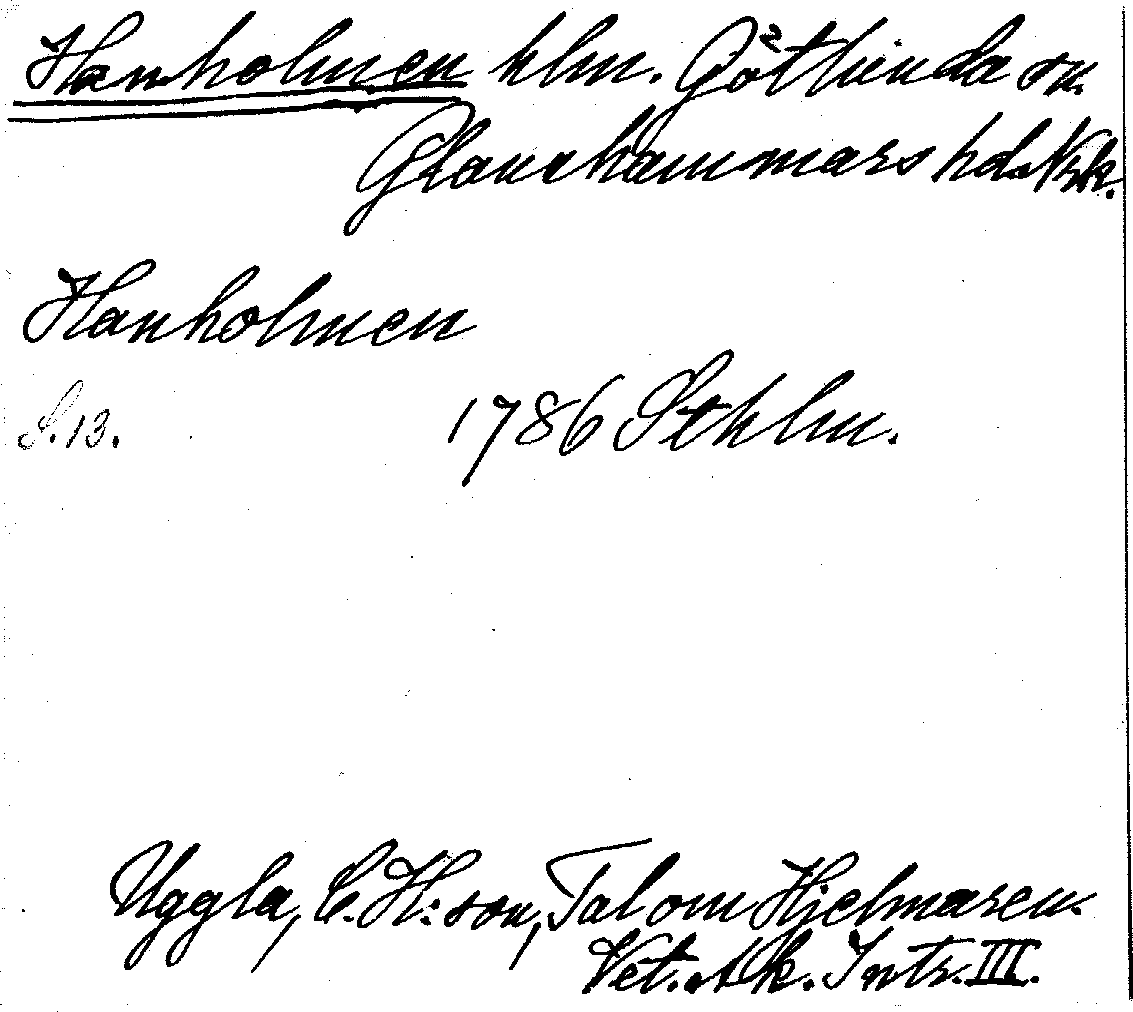 Hanholmen hlm. Götlunda sn.
Glanshammars hd. Nrk.
Hanholmen
S. 13.
1786 Sthlm.
Uggla, C. H:son, Tal om Hjelmaren.
Vet. Ak. Intr. III.